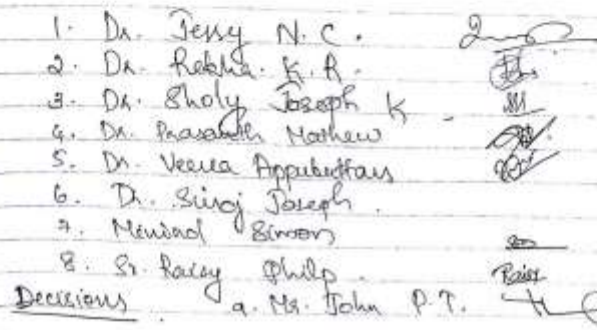 1. Dr. Jessy N. C.
2. Dr. Rekha. K. R.
3. Dr. Sholy Joseph K
4. Dr. Prasanth Mathew
5. Dr. Veena Appukuttan
6. Dr. Siroj Joseph.
7. Simon
8. Sr. Raisy Philip. Raisy
Decisions 9. Mr. John P. T.